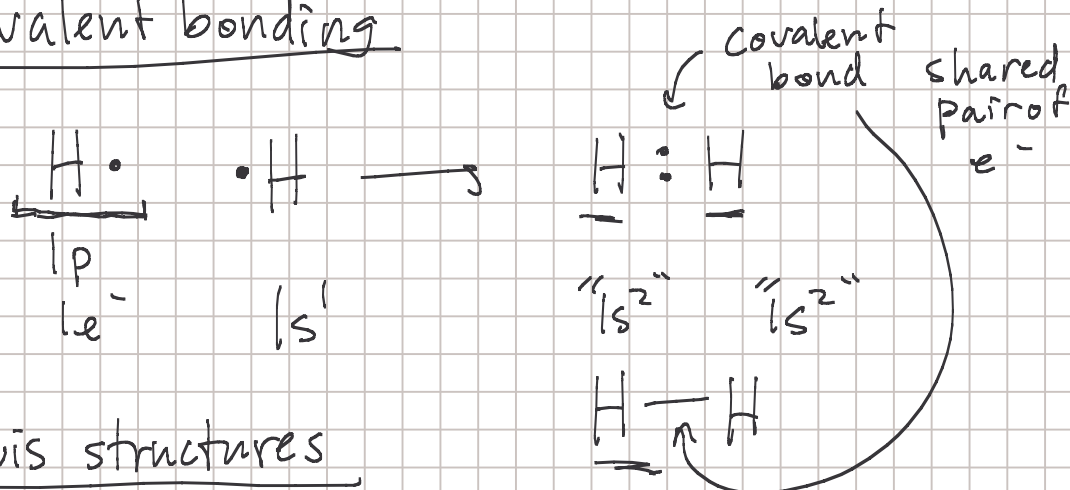 valent bonding
Covalent
bond
shared
pair of
e⁻
H· ·H ⟶ H:H
1p
1e⁻ 1s¹ "1s²" "1s²"
H—H
is structures